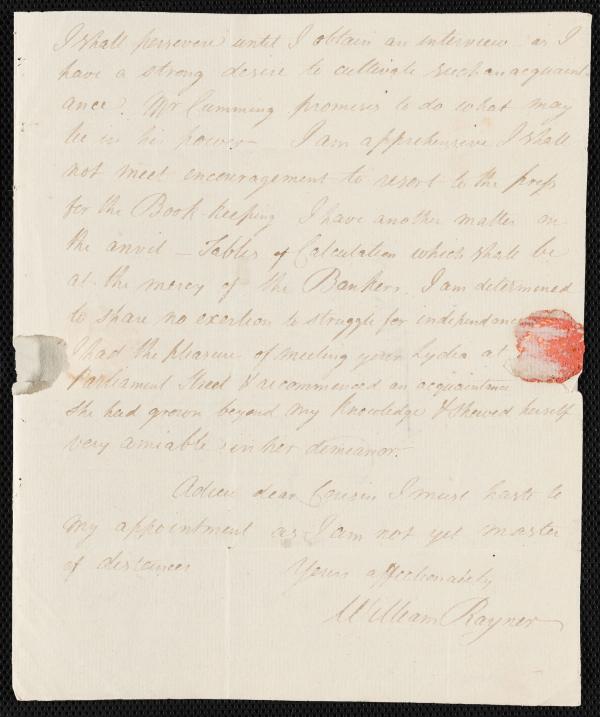 I shall persevere until I obtain an interview as I
have a strong desire to cultivate such an acquaint-
ance. Mr Cumming promises to do what may
be in his power – I am apprehensive I shall
not meet encouragement to resort to the press
for the Book-keeping I have another matter on
the anvil – Tables of Calculation which shall be
at the mercy of the Bankers. I am determined
to spare no exertion to struggle for independance
I had the pleasure of meeting your Lydia at
Parliament Street & recommenced an acquaintance
She had grown beyond my knowledge & shewed herself
very amiable in her demeanor.
Adieu dear Cousin I must haste to
my appointment as I am not yet master
of distances Yours affectionately
William Rayner